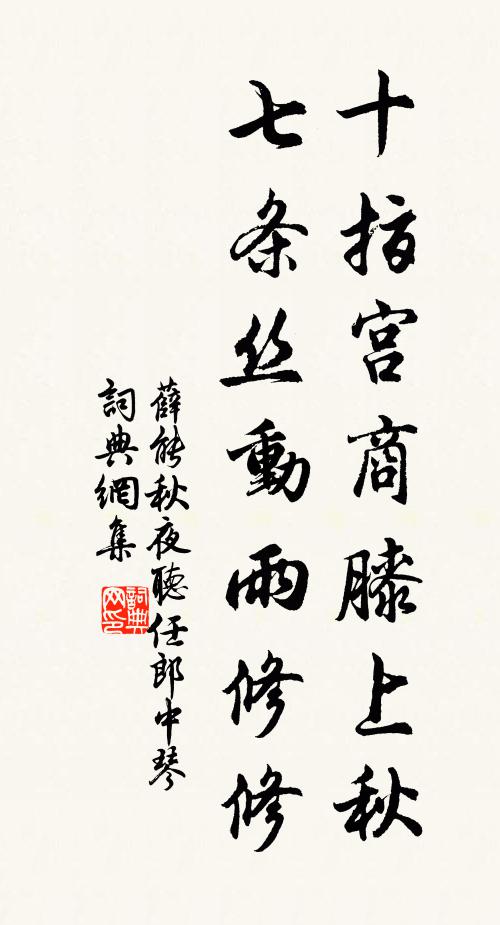 十指宮商膝上秋
七条丝動雨修修
薛能秋夜聴任郎中琴
詞典網集
詞典
网印